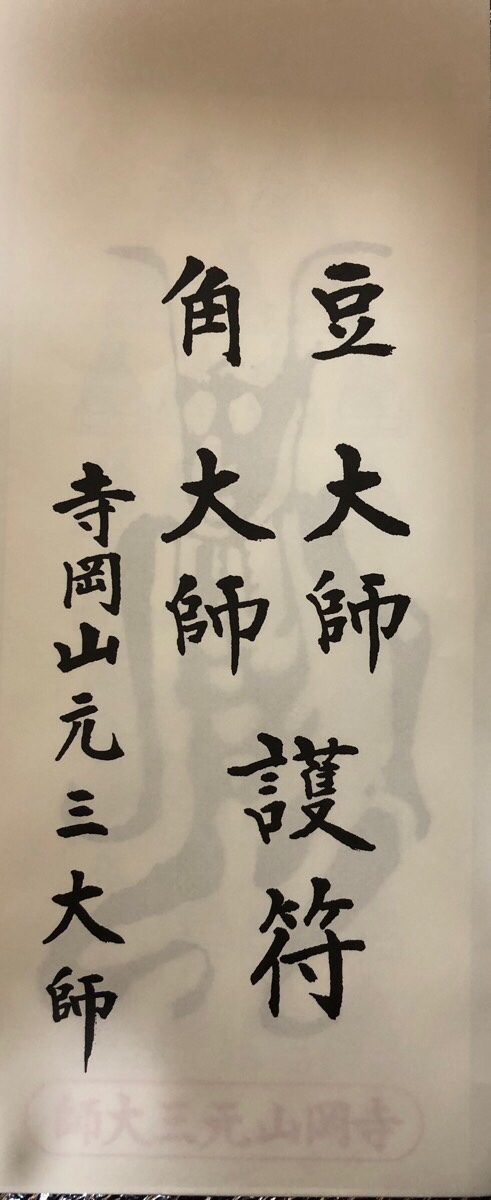 豆大師
角大師
護符
寺岡山元三大師
寺岡山元三大師